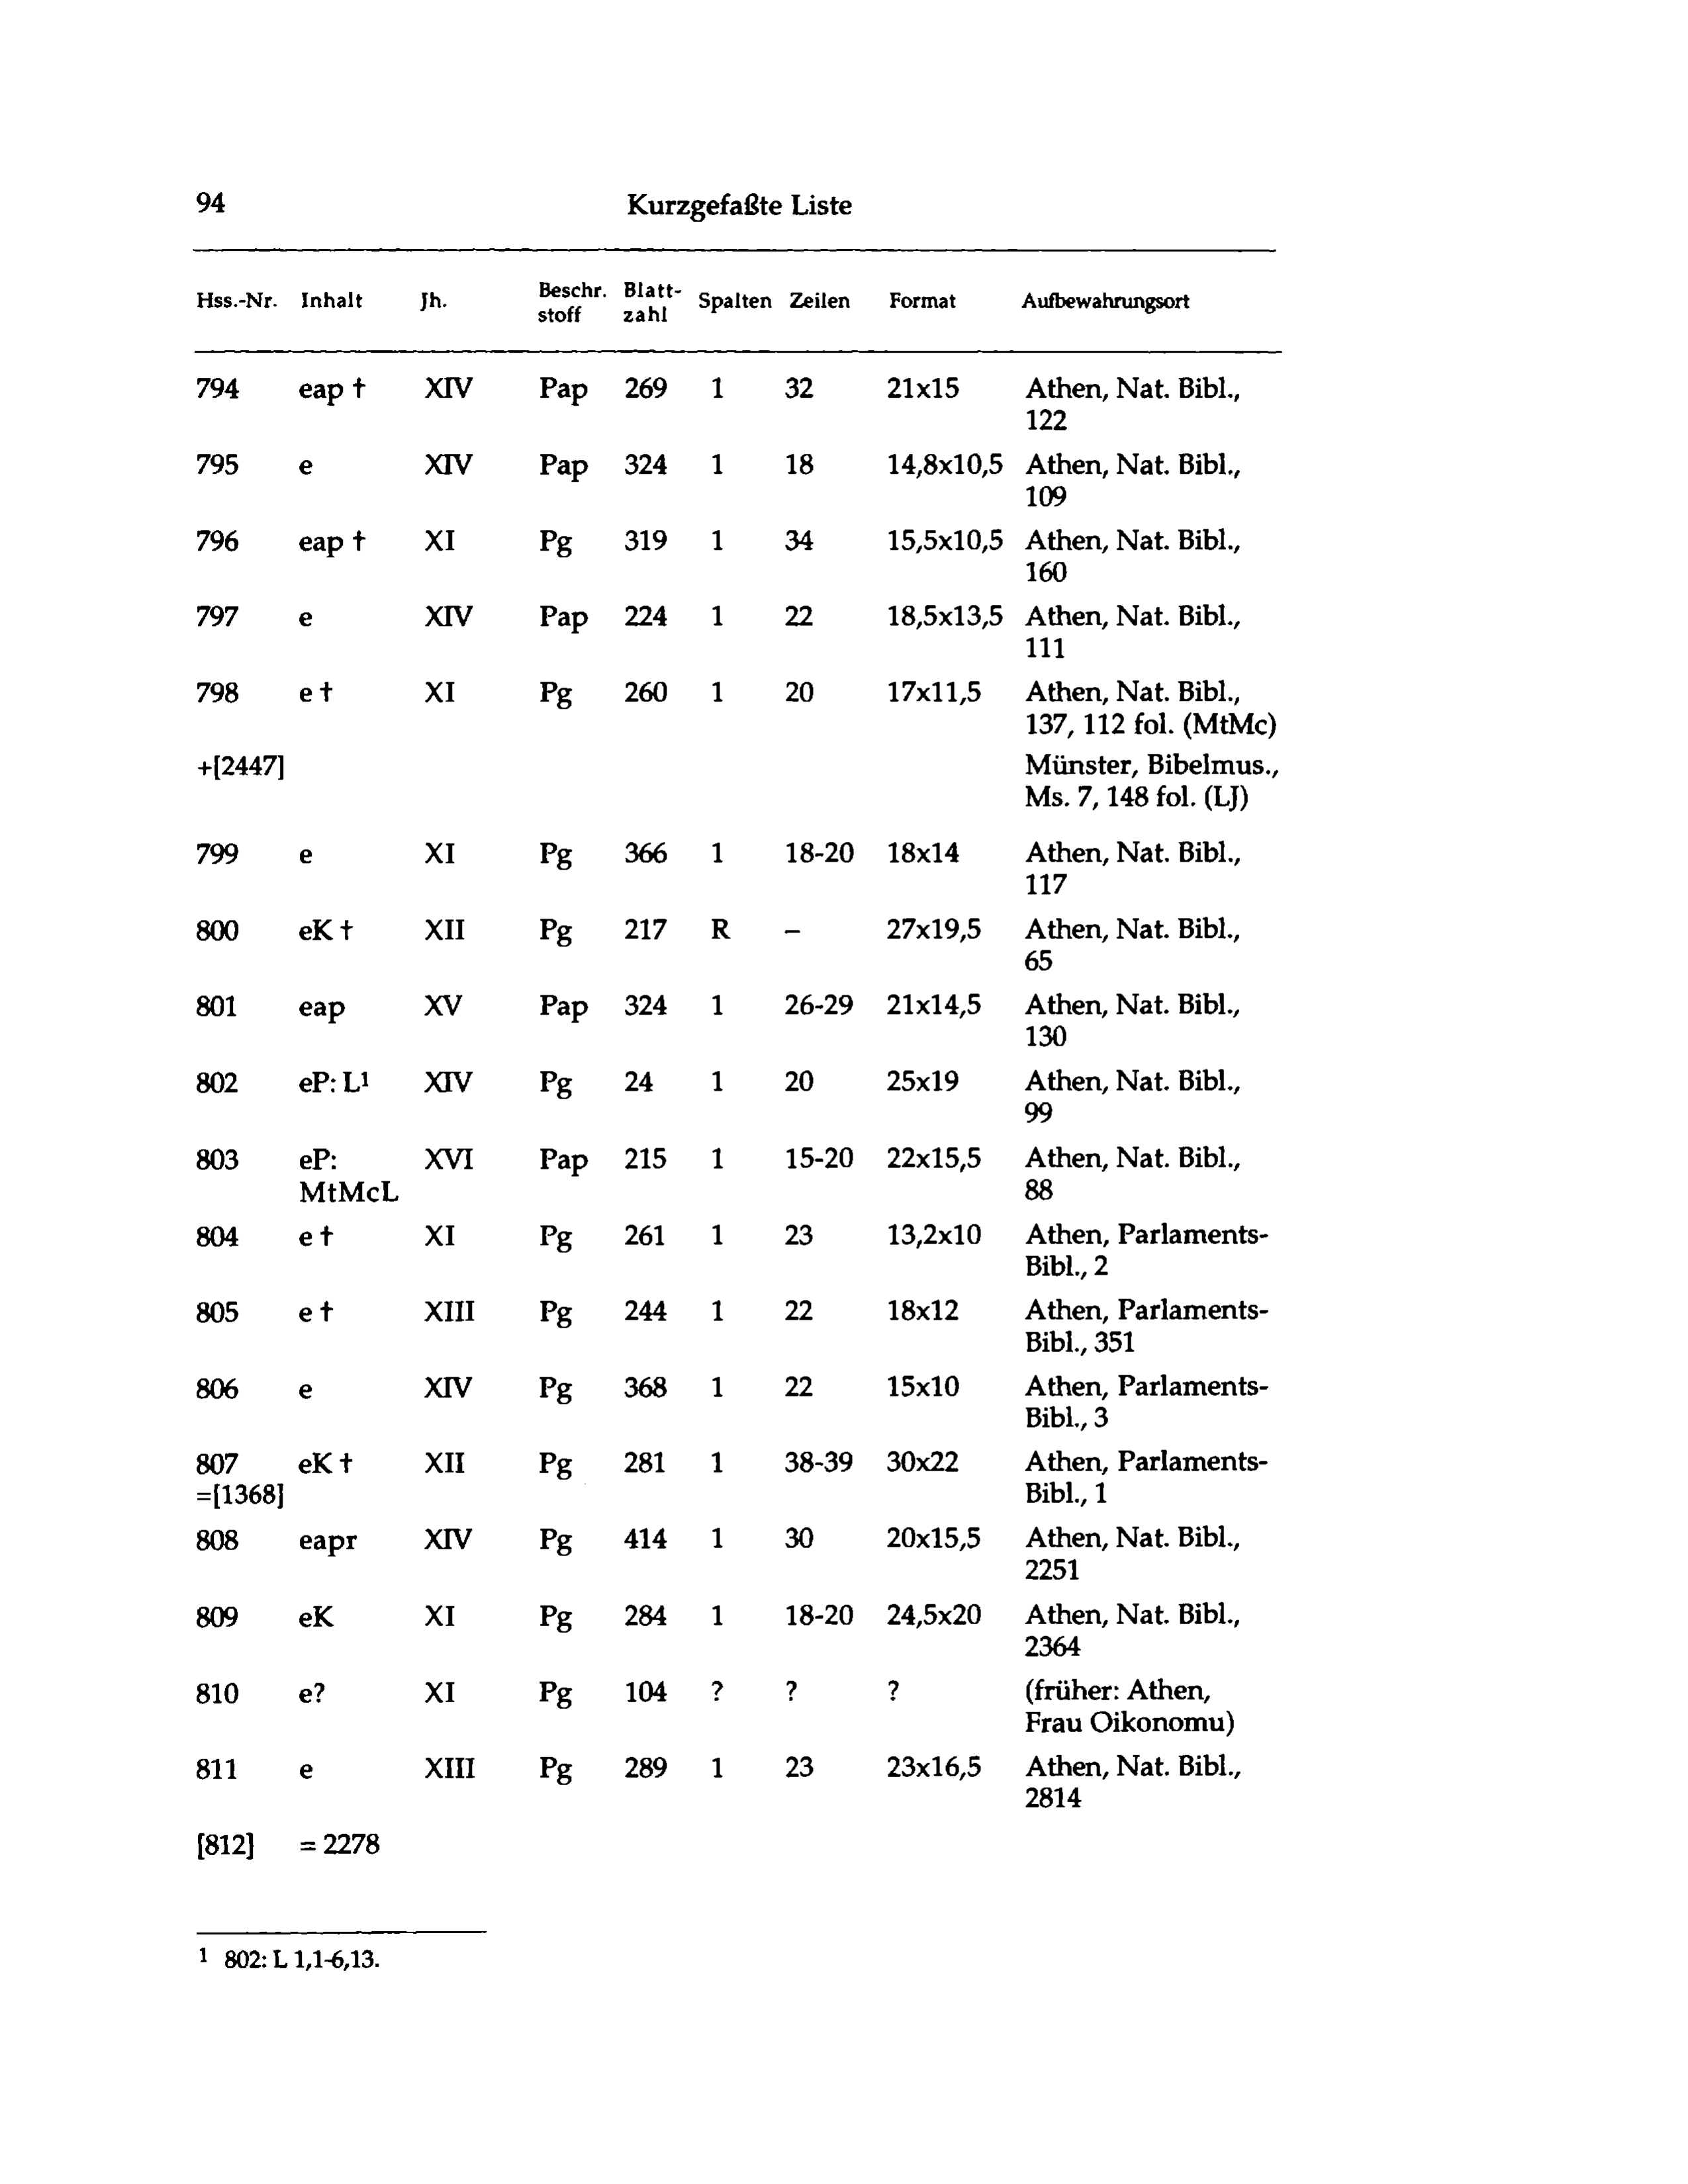 94 Kurzgefaßte Liste
Hss.-Nr. Inhalt Jh. Beschr. stoff Blatt- zahl Spalten Zeilen Format Aufbewahrungsort
794 eap † XIV Pap 269 1 32 21x15 Athen, Nat. Bibl.,
122
795 e XIV Pap 324 1 18 14,8x10,5 Athen, Nat. Bibl.,
109
796 eap † XI Pg 319 1 34 15,5x10,5 Athen, Nat. Bibl.,
160
797 e XIV Pap 224 1 22 18,5x13,5 Athen, Nat. Bibl.,
111
798 e † XI Pg 260 1 20 17x11,5 Athen, Nat. Bibl.,
137, 112 fol. (MtMc)
+[2447] Münster, Bibelmus.,
Ms. 7, 148 fol. (LJ)
799 e XI Pg 366 1 18-20 18x14 Athen, Nat. Bibl.,
117
800 eK † XII Pg 217 R – 27x19,5 Athen, Nat. Bibl.,
65
801 eap XV Pap 324 1 26-29 21x14,5 Athen, Nat. Bibl.,
130
802 eP: L¹ XIV Pg 24 1 20 25x19 Athen, Nat. Bibl.,
99
803 eP: XVI Pap 215 1 15-20 22x15,5 Athen, Nat. Bibl.,
MtMcL 88
804 e † XI Pg 261 1 23 13,2x10 Athen, Parlaments-
Bibl., 2
805 e † XIII Pg 244 1 22 18x12 Athen, Parlaments-
Bibl., 351
806 e XIV Pg 368 1 22 15x10 Athen, Parlaments-
Bibl., 3
807 eK † XII Pg 281 1 38-39 30x22 Athen, Parlaments-
=[1368] Bibl., 1
808 eapr XIV Pg 414 1 30 20x15,5 Athen, Nat. Bibl.,
2251
809 eK XI Pg 284 1 18-20 24,5x20 Athen, Nat. Bibl.,
2364
810 e? XI Pg 104 ? ? ? (früher: Athen,
Frau Oikonomu)
811 e XIII Pg 289 1 23 23x16,5 Athen, Nat. Bibl.,
2814
[812] = 2278
¹ 802: L 1,1-6,13.